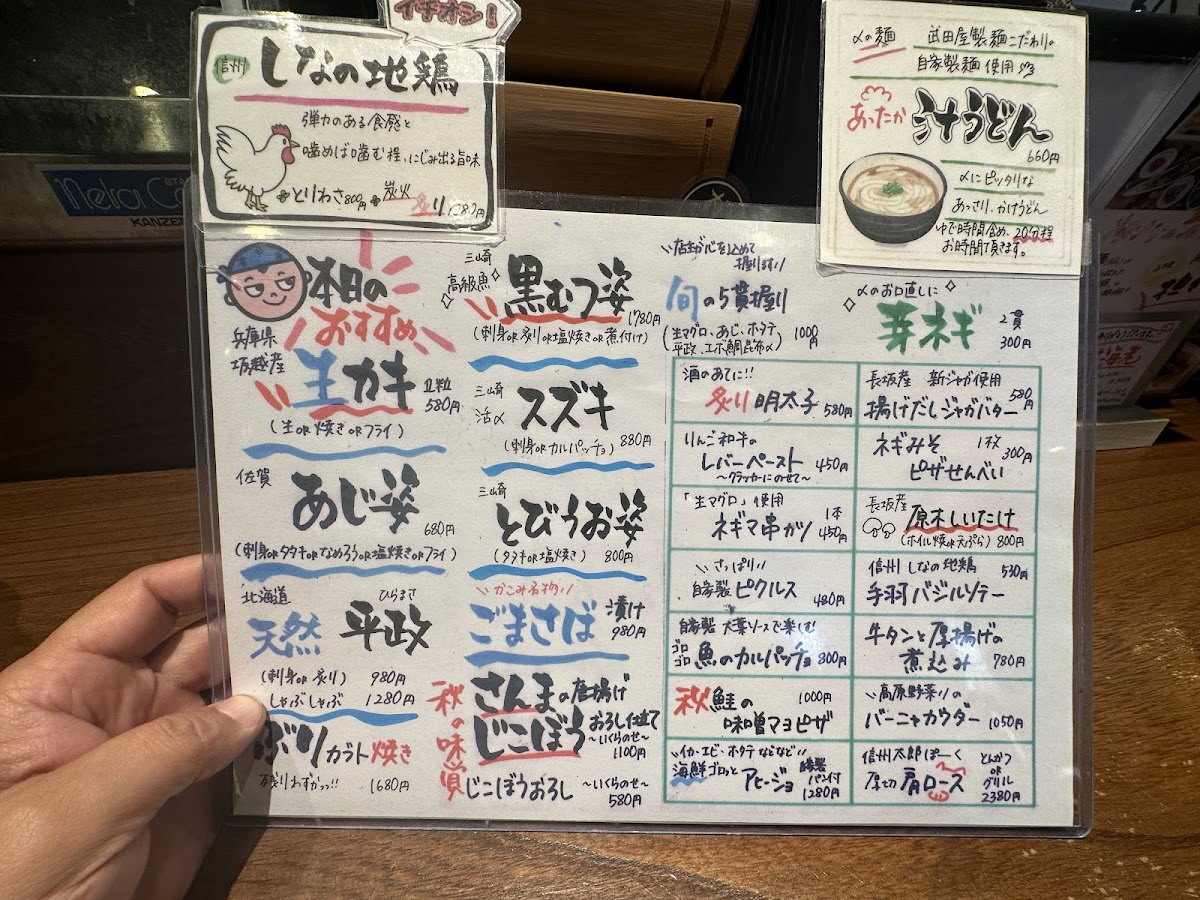 イチオシ!
信州
しなの地鶏
弾力のある食感と
噛めば噛む程、にじみ出る旨味
とりわさ800円 炭火炙り1280円
〆の麺 武田屋製麺こだわりの
自家製麺使用
あったか
汁うどん
660円
〆にピッタリな
あっさり、かけうどん
ゆで時間含め、20分程
お時間頂きます。
KANZEN
本日の
おすすめ
兵庫県
坂越産
生カキ 2粒
580円
(生or焼きorフライ)
佐賀
あじ姿
680円
(刺身orタタキorなめろうor塩焼きorフライ)
北海道
天然
ひらまさ
平政
(刺身or炙り) 980円
しゃぶしゃぶ 1280円
ぶりカラト焼き
残りわずかっ!! 1680円
三崎
高級魚
黒むつ姿
1780円
(刺身or炙りor塩焼きor煮付け)
三崎
活〆
スズキ
880円
(刺身orカルパッチョ)
三崎
とびうお姿
(タタキor塩焼き) 800円
かこみ名物!!
ごまさば 漬け
980円
秋の味覚
さんまの唐揚げ
じこぼうおろし仕立て
〜いくらのせ〜
1100円
じこぼうおろし 〜いくらのせ〜
580円
店主が心を込めて
握ります!!
旬の5貫握り
(生マグロ、あじ、ホタテ
平政、エボ鯛昆布〆) 1000円
〆のお口直しに
芽ネギ 2貫
300円
酒のあてに!!
炙り明太子 580円
りんご和牛の
レバーペースト 450円
〜クラッカーにのせて〜
「生マグロ」使用
ネギマ串カツ 1本
450円
さっぱり!!
自家製ピクルス 480円
自家製 大葉ソースで楽しむ
ゴロゴロ魚のカルパッチョ 800円
秋鮭の 1000円
味噌マヨピザ
イカ・エビ・ホタテなどなど!!
海鮮ゴロッとアヒージョ 特製
パン付
1280円
長坂産 新ジャガ使用
揚げだしジャガバター 580円
ネギみそ 1枚
300円
ピザせんべい
長坂産
原木しいたけ
(ホイル焼or天ぷら) 800円
信州しなの地鶏 530円
手羽バジルソテー
牛タンと厚揚げの
煮込み 780円
高原野菜!!の
バーニャカウダー 1050円
信州太郎ぽーく
厚切肩ロース とんかつ
or
グリル
2380円